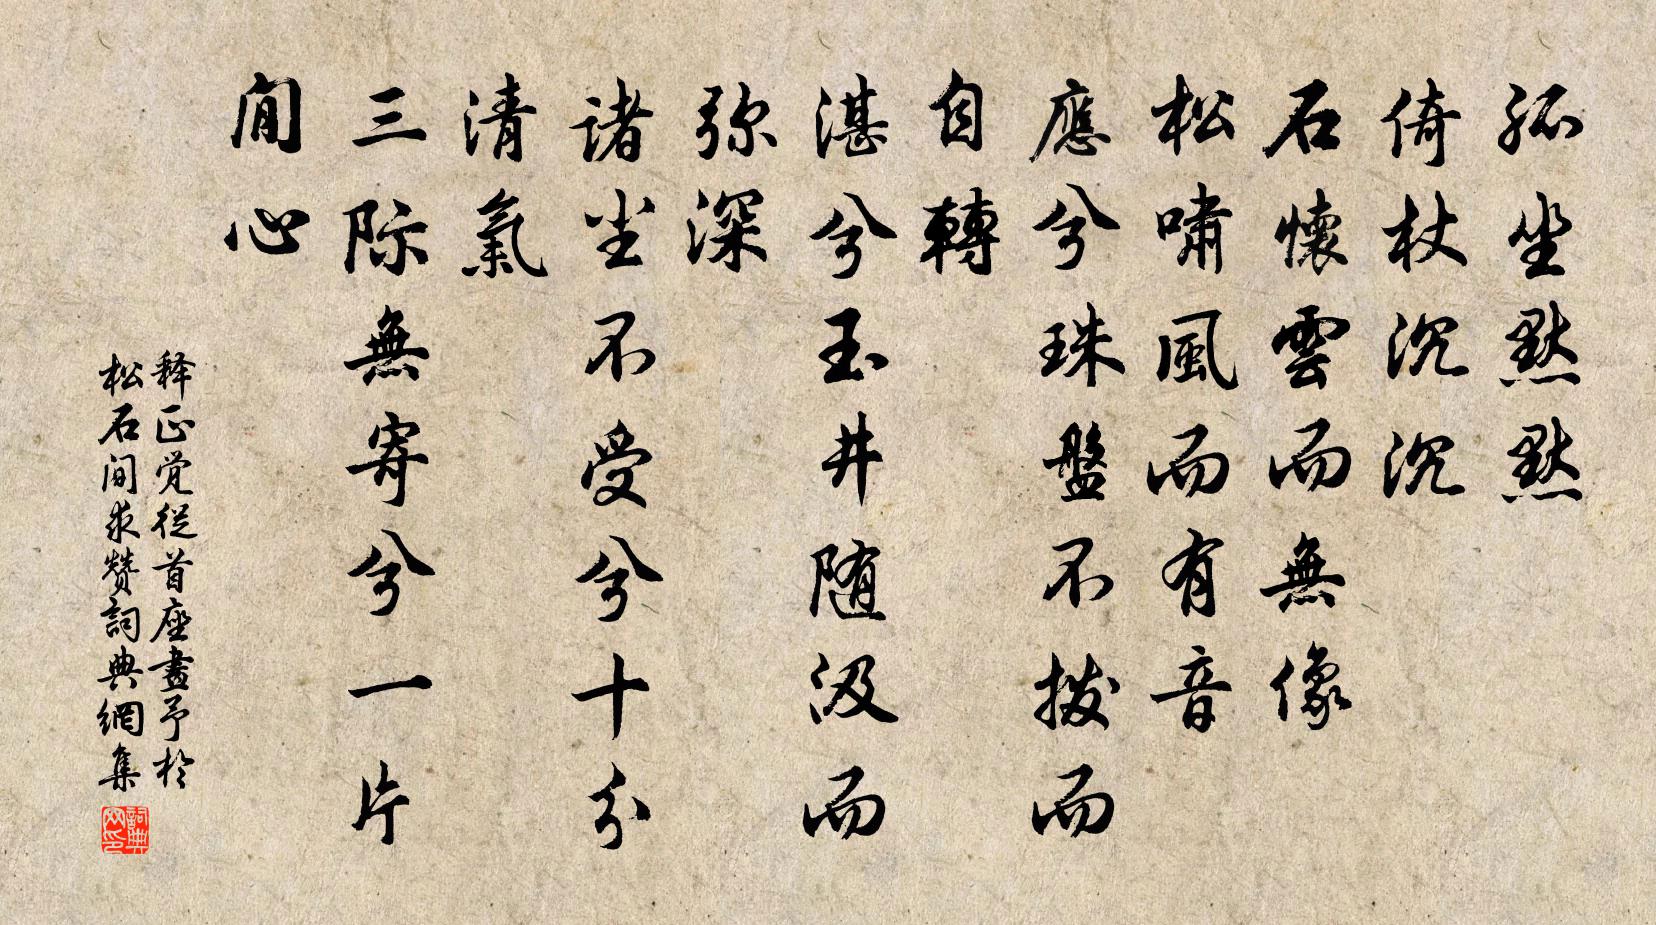 孤坐默默
倚杖沉沉
石懷雲而無像
松嘯風而有音
應兮珠盤不拨而
自轉
湛兮玉井随汲而
弥深
诸尘不受兮十分
清氣
三际無寄兮一片
閒心
释正觉從首座畫予於
松石间求赞詞典網集
詞典
网印